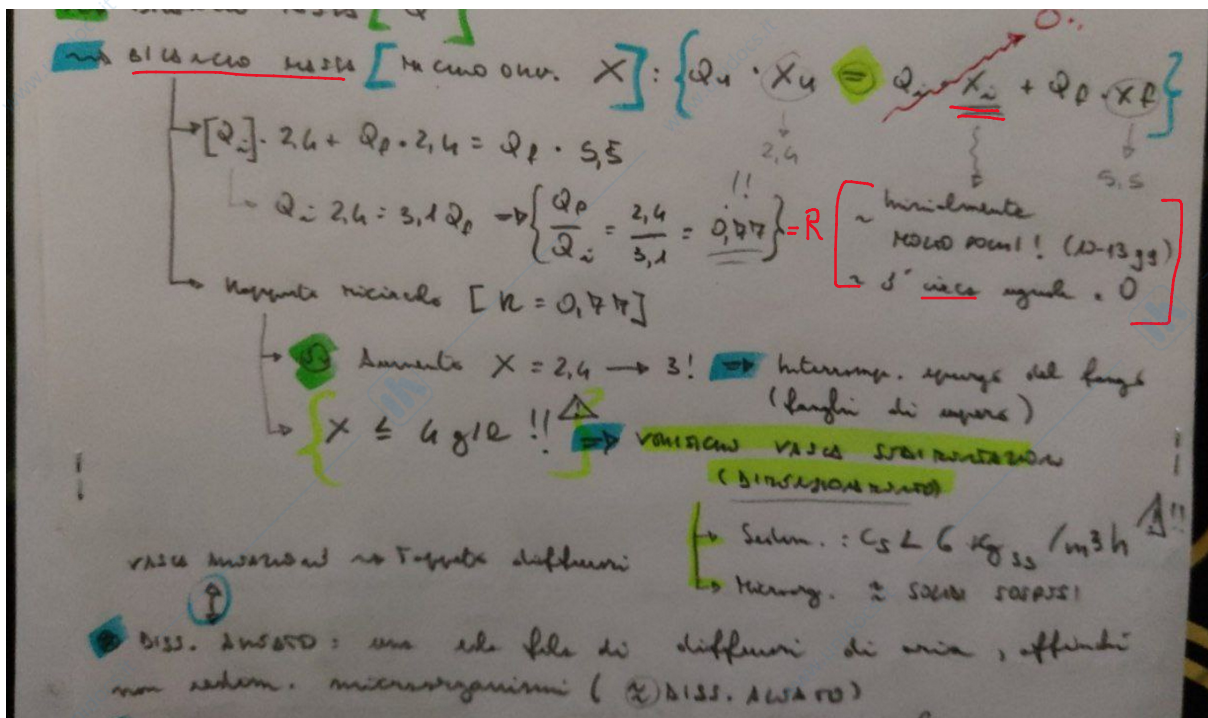 BILANCIO MASSA [Q]
→ BILANCIO MASSA [MICROORG. X] : {Qu · Xu = Qi · Xi + Qf · Xf} 0..
→ [Qi] · 2,4 + Qf · 2,4 = Qf · 5,5
2,4
5,5
Qi 2,4 = 3,1 Qf ⇒ {Qf/Qi = 2,4/3,1 = 0,77} = R !!
~ Inizialmente
MOLTO POCHI! (10-13 gg)
~ circa uguale a 0
→ Rapporto ricircolo [R = 0,77]
→ Aumento X = 2,4 → 3! ⇒ Interromp. spurgo del fango
(fanghi di supero)
→ {X ≤ 4 g/l !!} ⇒ VERIFICHO VASCA SEDIMENTAZIONE
(DIMENSIONAMENTO)
→ Sedim. : Cs < 6 Kgss/m3 h !!
→ Microorg. ≈ SOLIDI SOSPESI
VASCA AERAZIONE → Tappeto diffusori
DISS. AERATO : una sola fila di diffusori di aria, affinché
non sedim. microorganismi (≈ DISS. AERATO)